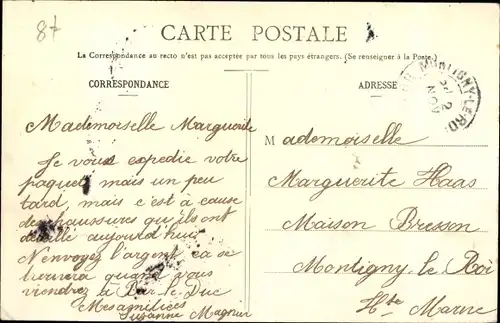 87
CARTE POSTALE
La Correspondance au recto n'est pas acceptée par tous les pays étrangers. (Se renseigner à la Poste.)
CORRESPONDANCE
Mademoiselle Marguerite
Je vous expedie votre
paquet mais un peu
tard, mais c'est à cause
des chaussures qu'ils ont
aujourd'hui
N'envoyez l'argent ça se
quand vous
viendrez à Bar-le-Duc
Mes amitiées
Susanne Magnin
ADRESSE
MONTIGNY-LE-ROI
2
NOV
Mademoiselle
Marguerite Haas
Maison Bresson
Montigny-le Roi
Hte Marne